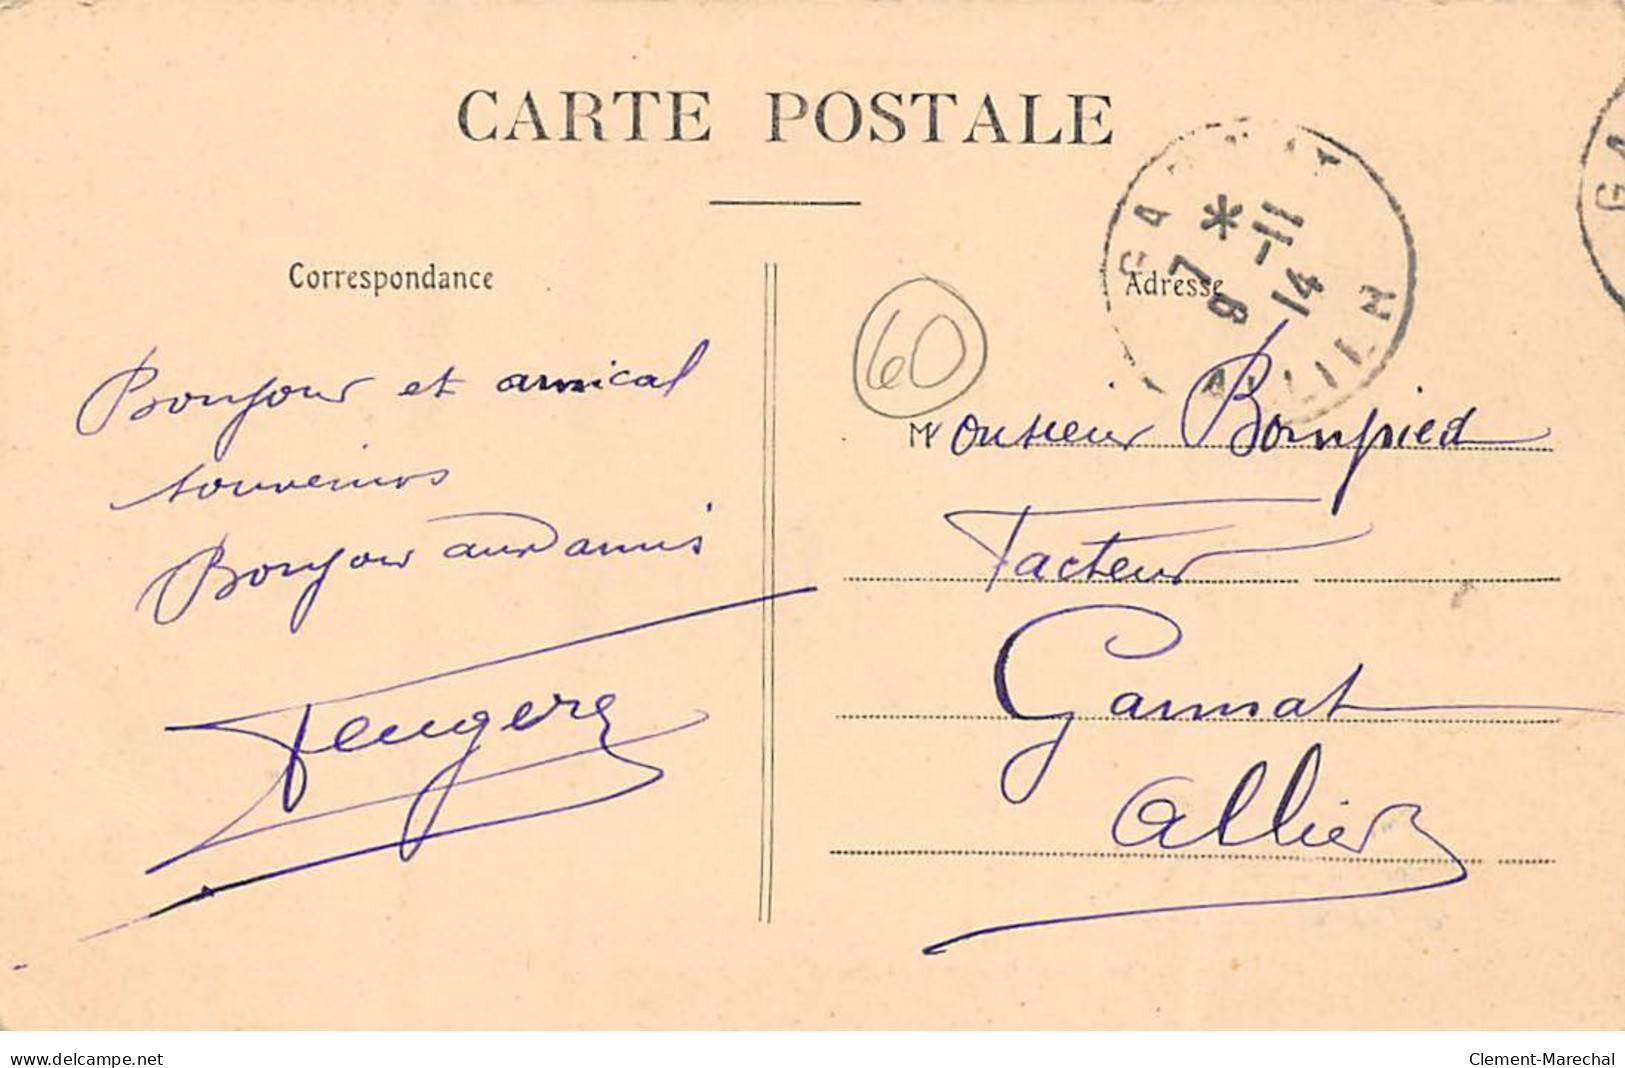 CARTE POSTALE
Correspondance
Adresse
GANNAT
7 * 9 -11 14
ALLIER
GA
60
Bonjour et amical
souvenirs
Bonjour aux amis
Feugere
Monsieur Bompied
Facteur
Gannat
Allier
www.delcampe.net
Clement-Marechal